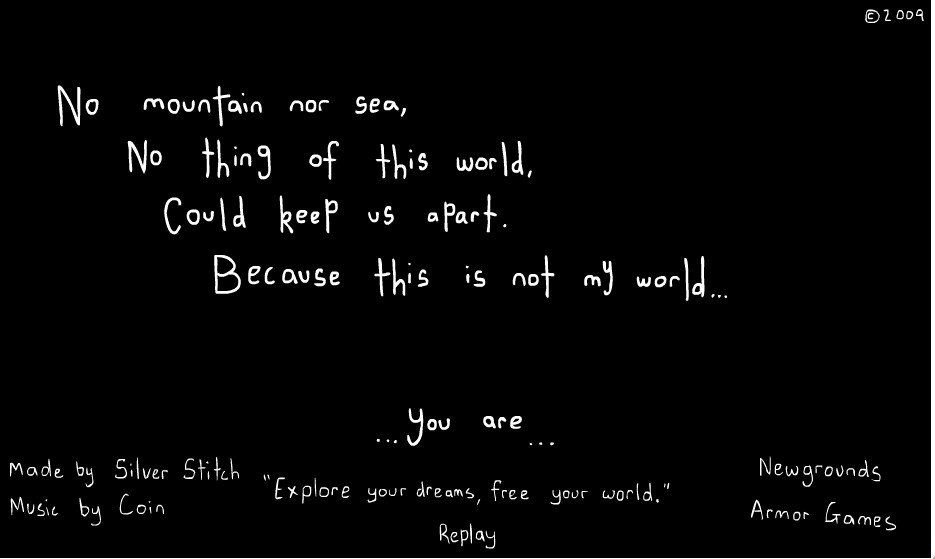 ©2009
No mountain nor sea,
No thing of this world,
Could keep us apart.
Because this is not my world...
...you are...
Made by Silver Stitch
Music by Coin
"Explore your dreams, free your world."
Replay
Newgrounds
Armor Games